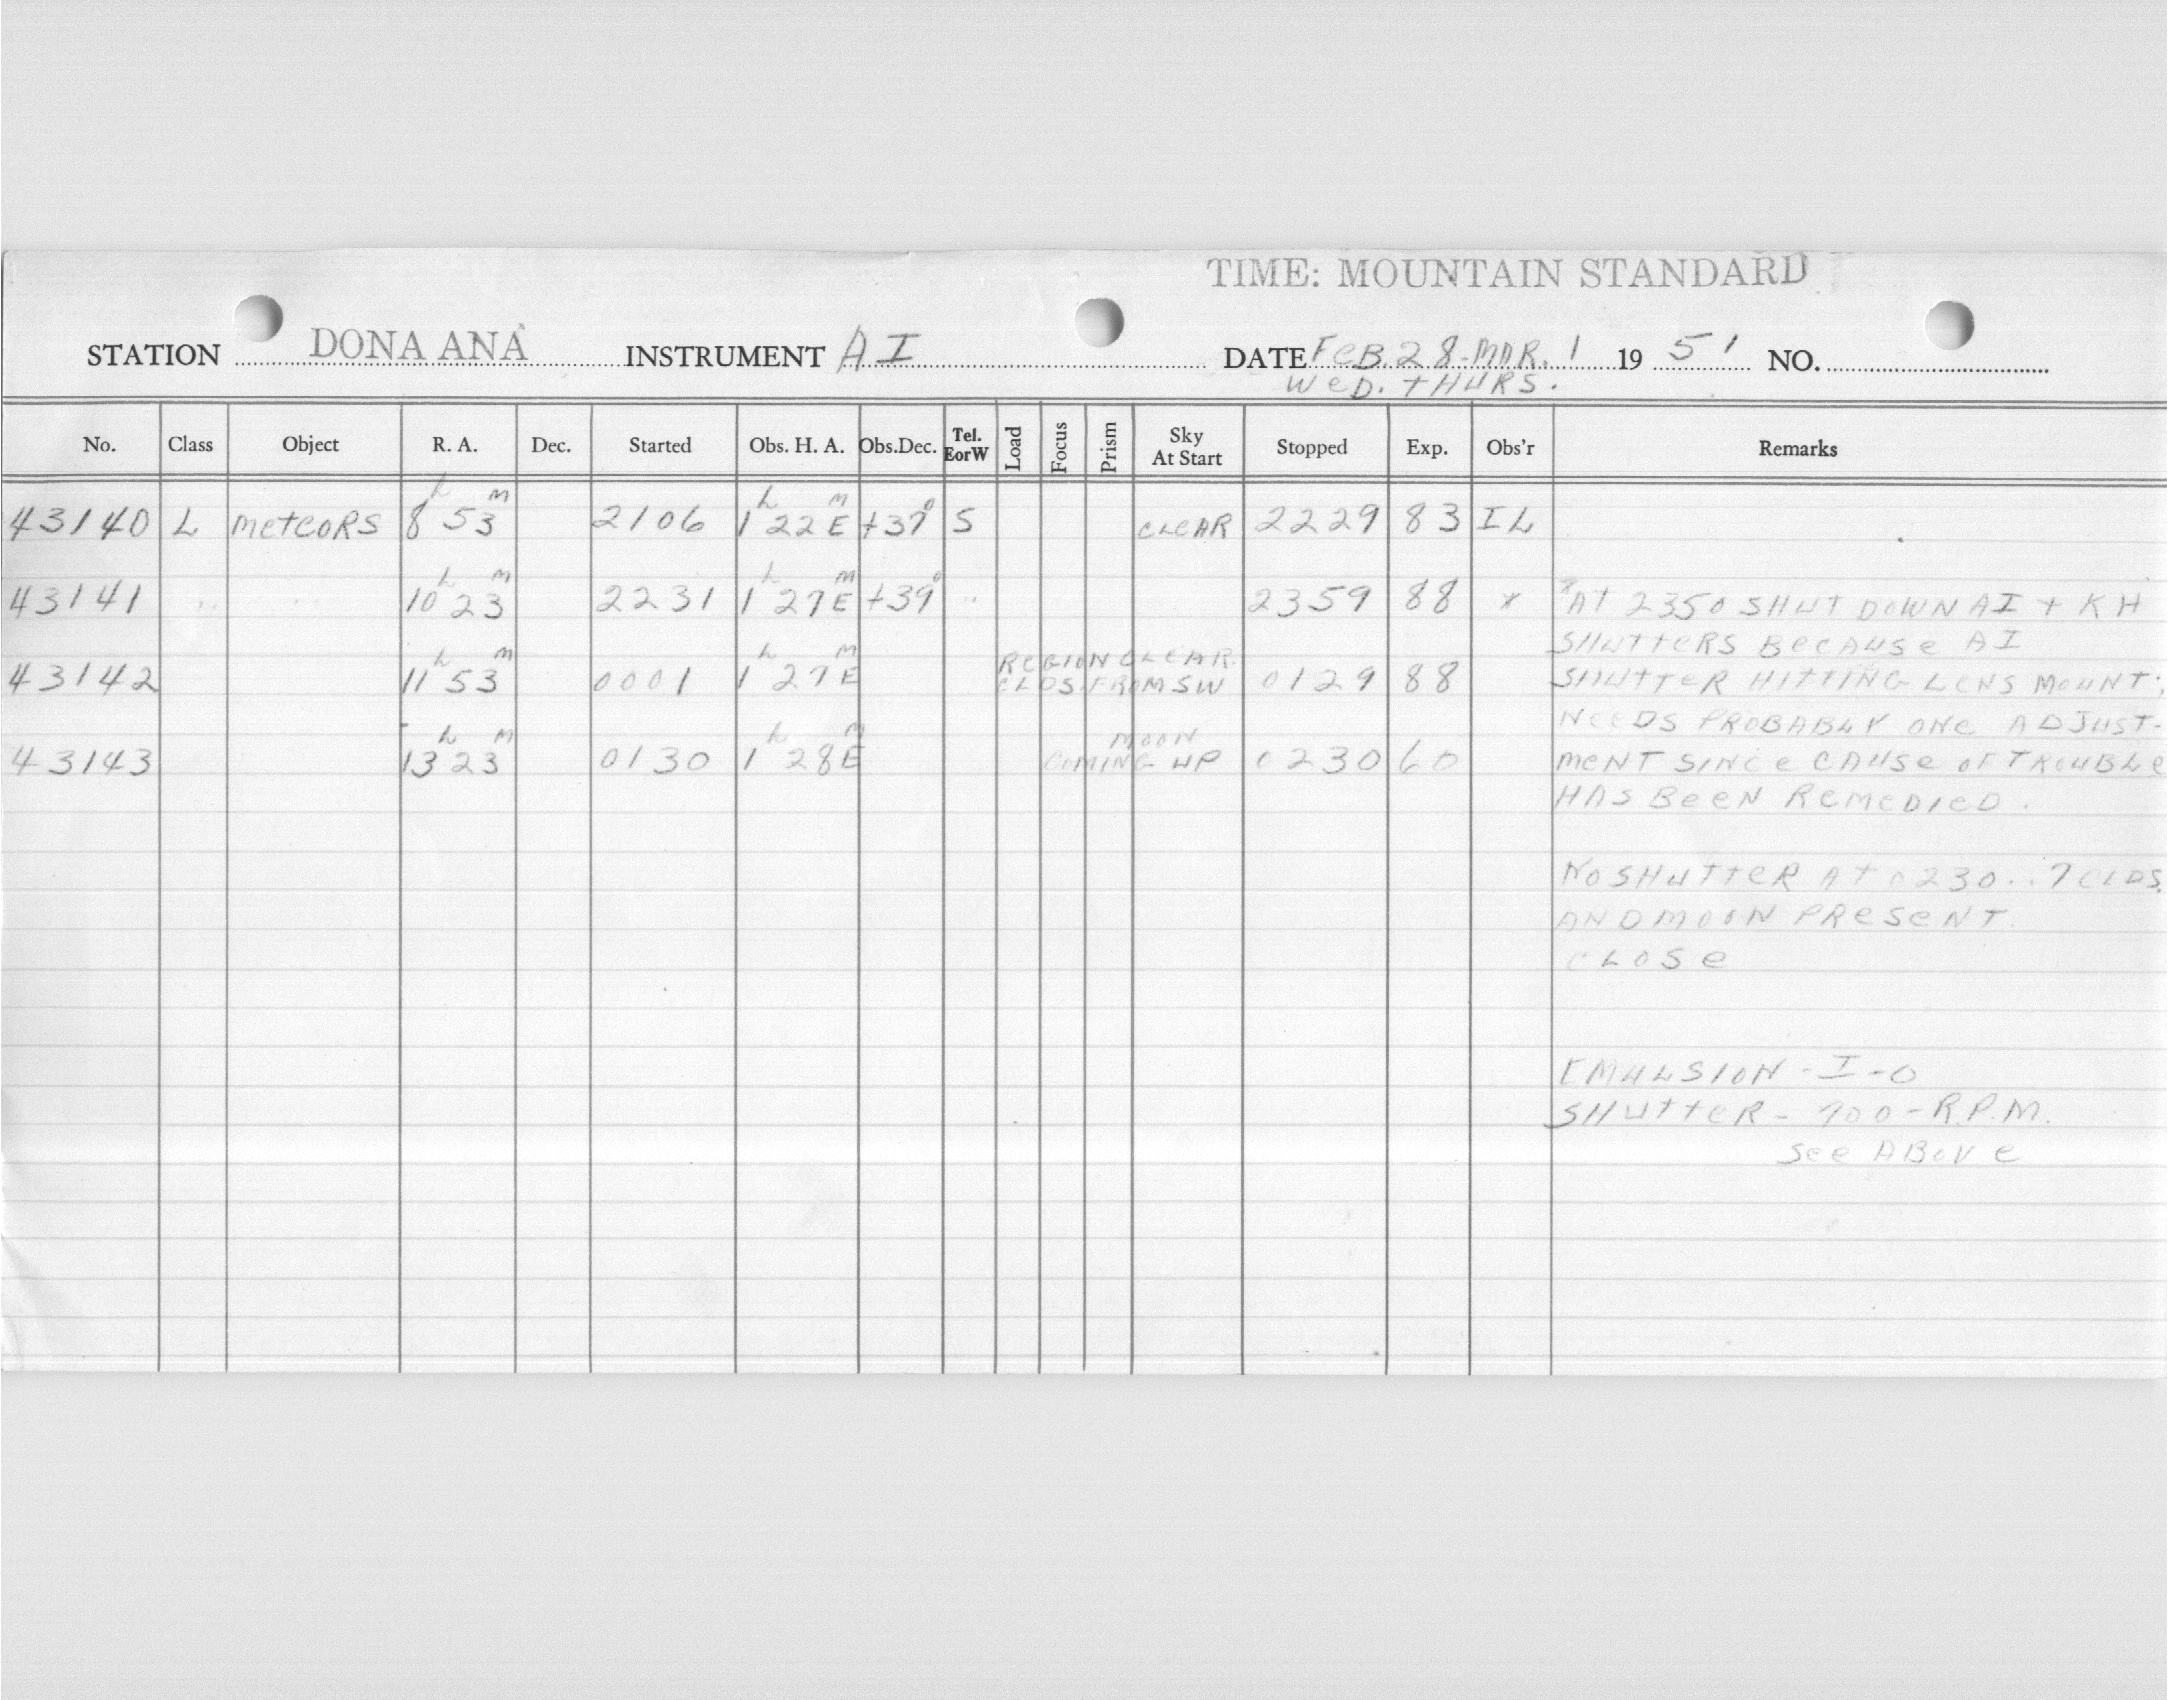 TIME: MOUNTAIN STANDARD
STATION DONA ANA INSTRUMENT AI DATE FEB. 28-MAR. 1 19 51 NO.
WED. THURS.
No. Class Object R. A. Dec. Started Obs. H. A. Obs.Dec. Tel. EorW Load Focus Prism Sky At Start Stopped Exp. Obs'r Remarks
43140 L METEORS 8h 53m 2106 1h 22mE +39° S CLEAR 2229 83 IL
43141 " " 10h 23m 2231 1h 27mE +39° " 2359 88 x *AT 2350 SHUT DOWN AI + KH
SHUTTERS BECAUSE AI
43142 11h 53m 0001 1h 27mE REGION CLEAR. CLDS. FROM SW 0129 88 SHUTTER HITTING LENS MOUNT;
NEEDS PROBABLY ONE ADJUST-
43143 13h 23m 0130 1h 28mE MOON COMING UP 0230 60 MENT SINCE CAUSE OF TROUBLE
HAS BEEN REMEDIED.
NO SHUTTER AT 0230.. 7 CLDS.
AND MOON PRESENT.
CLOSE
EMULSION - I-O
SHUTTER - 900 - R.P.M.
SEE ABOVE